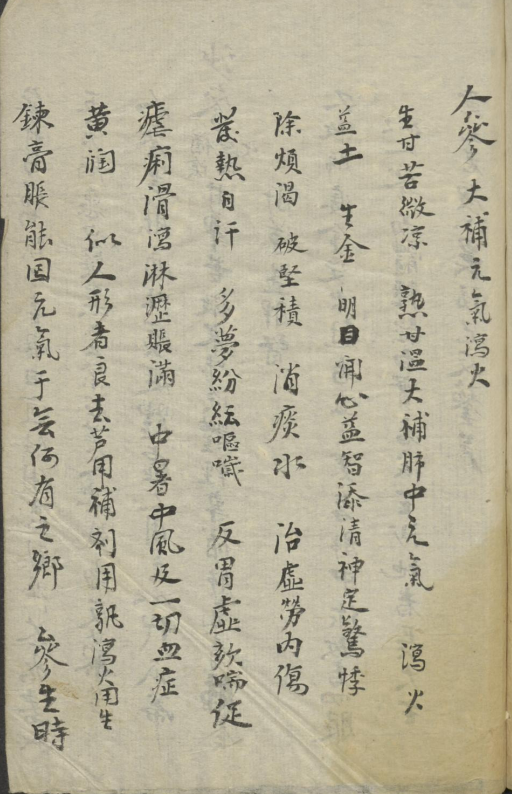 人參 大補元氣瀉火
生甘苦微凉 熟甘溫大補肺中元氣 瀉火
益土 生金 明目開心益智添清神定驚悸
除煩渴 破堅積 消痰水 治虛勞內傷
發熱自汗 多夢紛紜嘔噦 反胃虛欬喘促
瘧痢滑瀉淋瀝脹滿 中暑中風及一切血症
黃潤 似人形者良去芦用補剤用熟瀉火用生
鍊膏服能回元氣于無何有之鄉 參生時